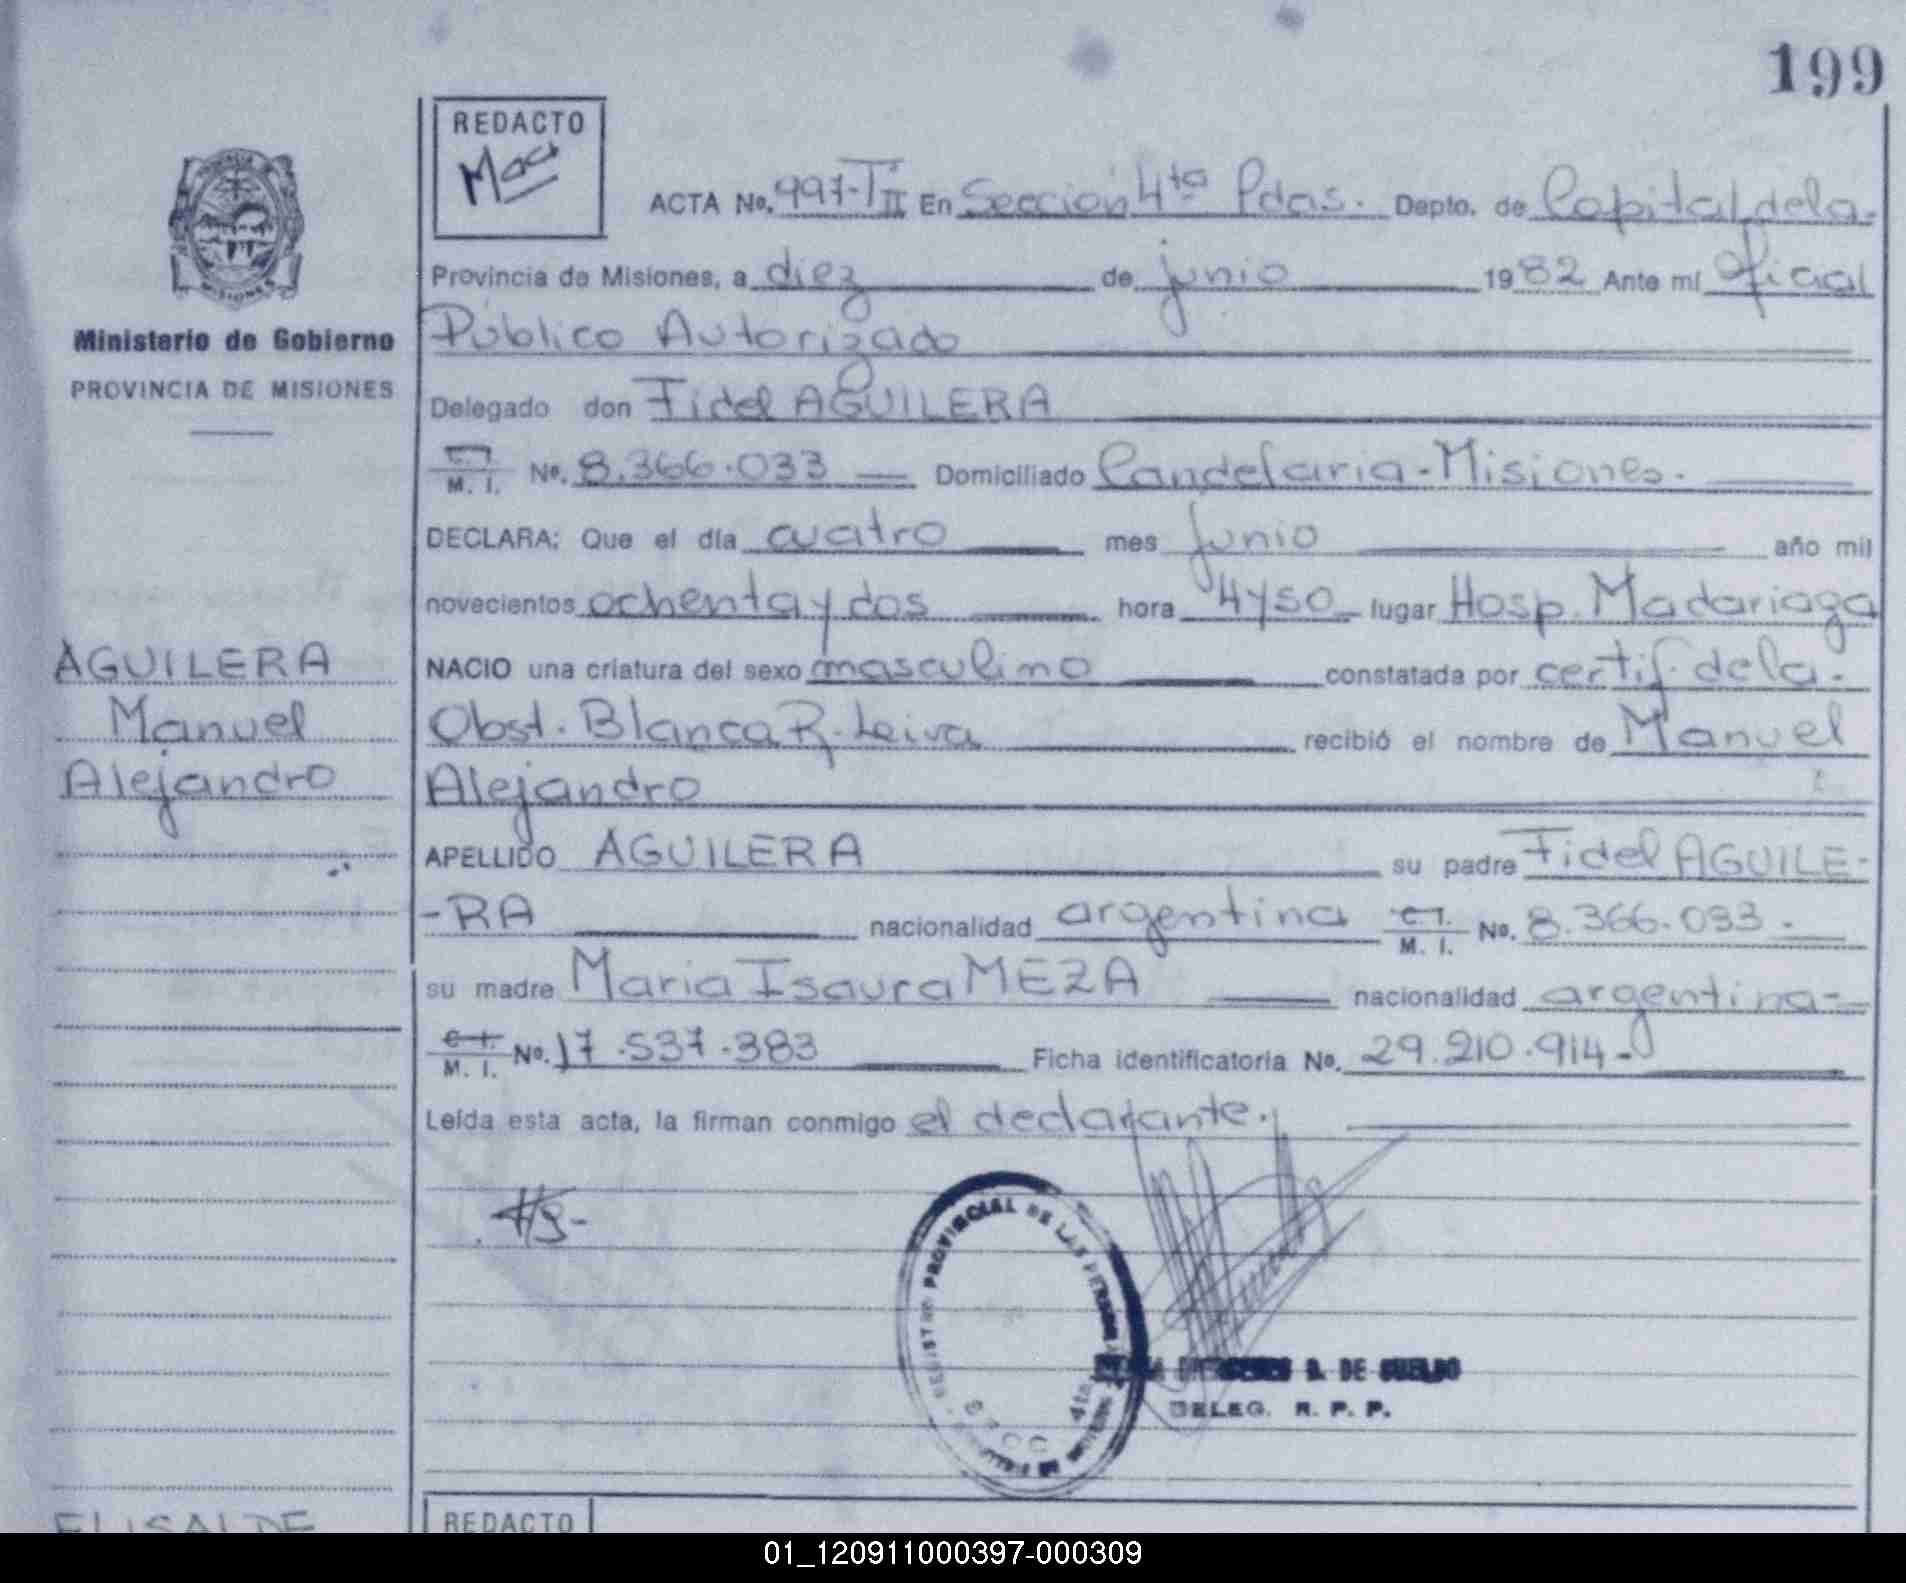 199
REDACTO
ACTA No. 997-TII En Sección 4ta Pdas. Depto. de Capital de la.
Provincia de Misiones, a diez de junio 1982 Ante mí Oficial
Público Autorizado
Delegado don Fidel AGUILERA
C.I. M. I. No. 8.366.033 Domiciliado Candelaria-Misiones.
DECLARA: Que el día cuatro mes junio año mil
novecientos ochenta y dos hora 4y50 lugar Hosp. Madariaga
NACIO una criatura del sexo masculino constatada por certif. de la.
Obst. Blanca R. Leiva recibió el nombre de Manuel
Alejandro
APELLIDO AGUILERA su padre Fidel AGUILE-
-RA nacionalidad argentina C.I. M. I. No. 8.366.033.
su madre Maria Isaura MEZA nacionalidad argentina-
C.I. M. I. No. 17.537.383 Ficha identificatoria No. 29.210.914-
Leída esta acta, la firman conmigo el declarante.
REGISTRO PROVINCIAL DE LAS PERSONAS
4ta
D. DE
DELEG. R. P. P.
REDACTO
MISIONES
Ministerio de Gobierno
PROVINCIA DE MISIONES
AGUILERA
Manuel
Alejandro
ELISALDE
01_120911000397-000309